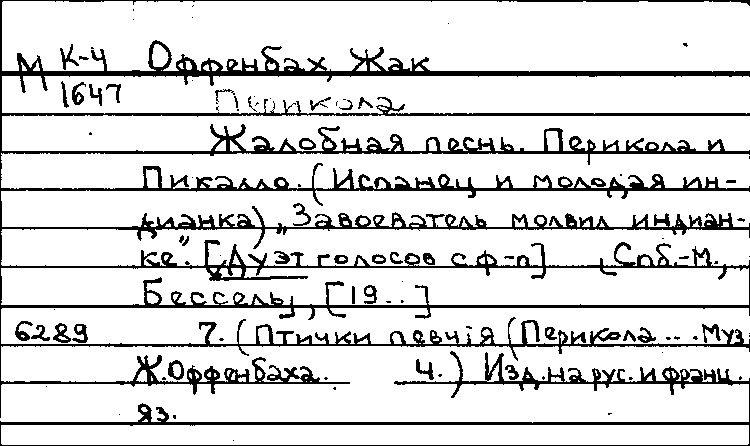 М К-4 Оффенбах, Жак
1647 Перикола
Жалобная песнь. Перикола и
Пикалло. (Испанец и молодая ин-
дианка) „Завоеватель молвил индиан-
ке". [Дуэт голосов с ф-п] [Спб.-М.,
Бессель], [19..]
6289 7. (Птички певчiя (Перикола ... Муз
Ж.Оффенбаха. 4.) Изд. на рус. и франц.
яз.